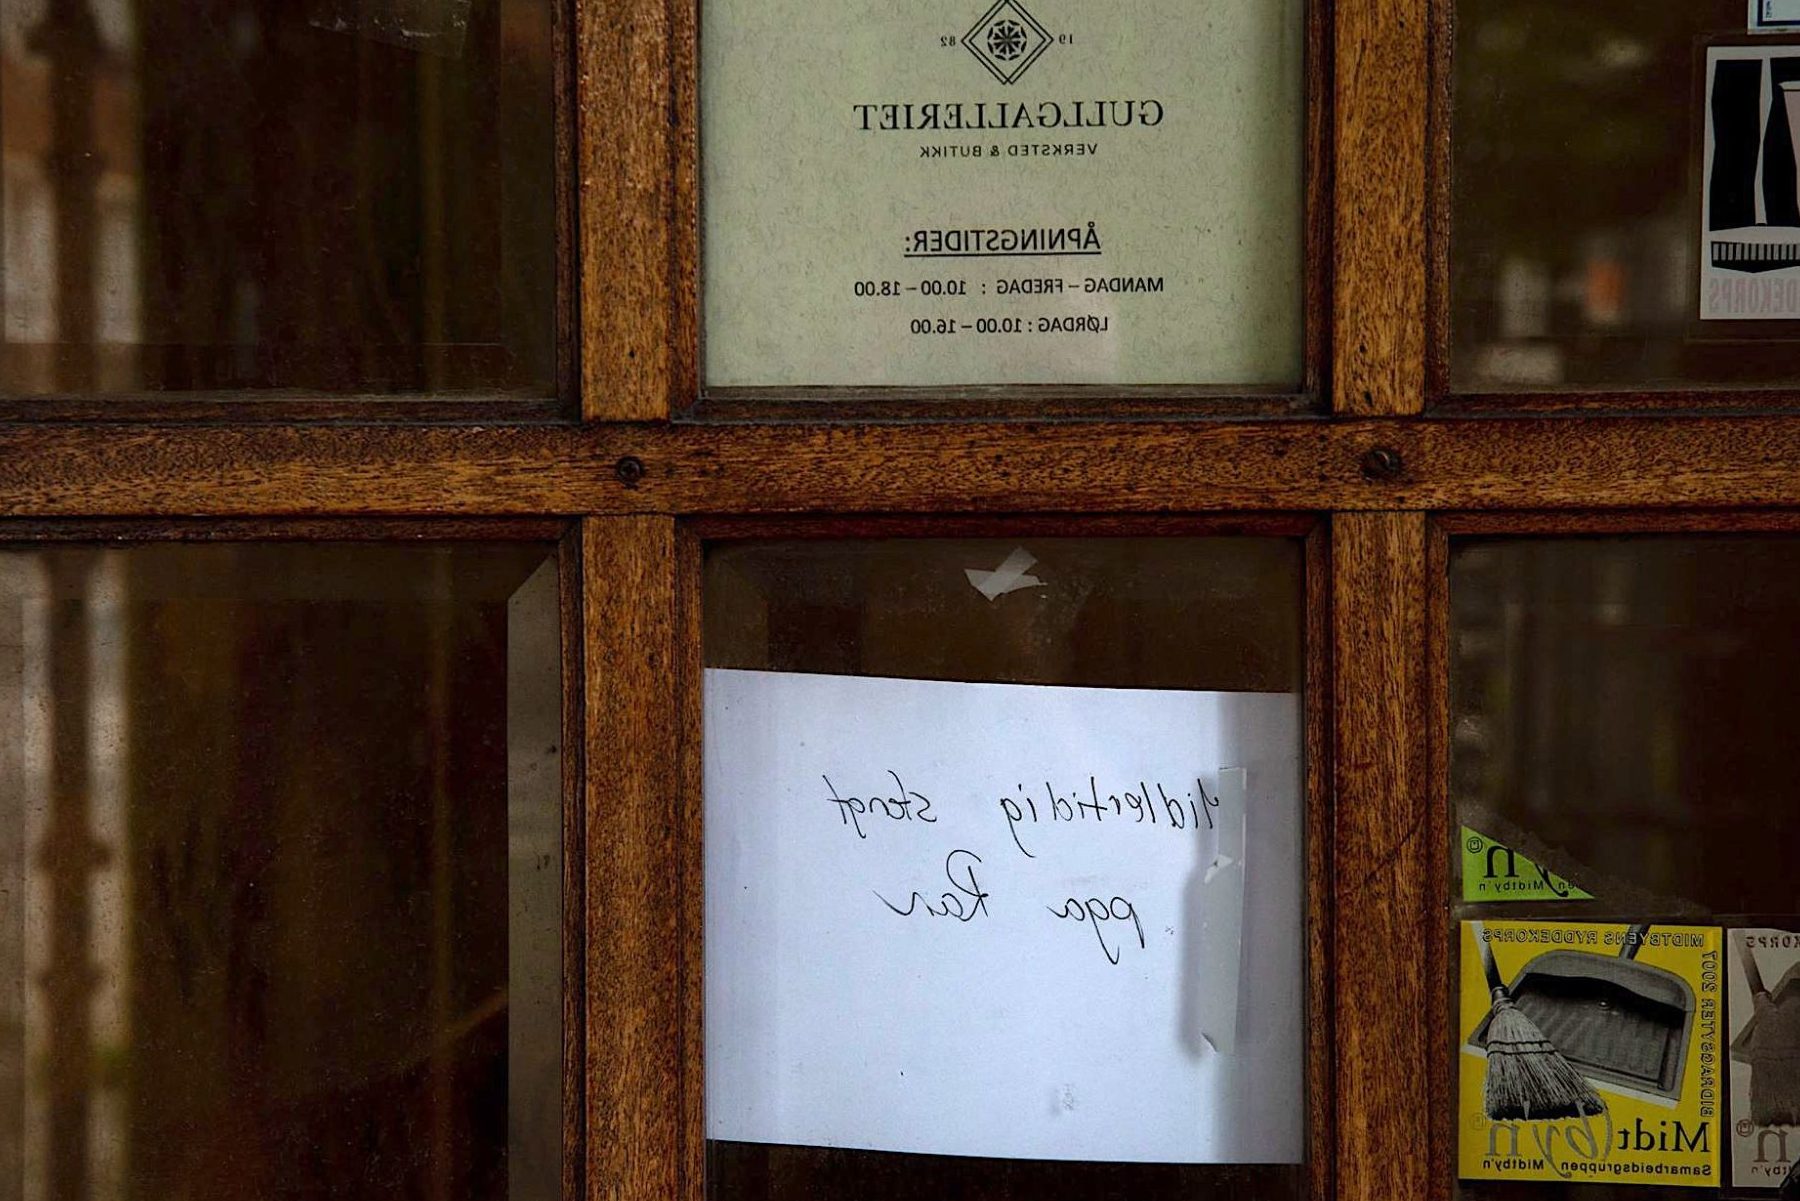 19 82
GULLGALLERIET
VERKSTED & BUTIKK
ÅPNINGSTIDER:
MANDAG – FREDAG : 10.00 – 18.00
LØRDAG : 10.00 – 16.00
Midlertidig stengt
pga Ran
DEKORPS
by'n
en Midtby'n
MIDTBYENS RYDDEKORPS
BIDRAGSYTER 2001
Midtbyn
Samarbeidsgruppen Midtby'n
KORPS
n
Midtby'n